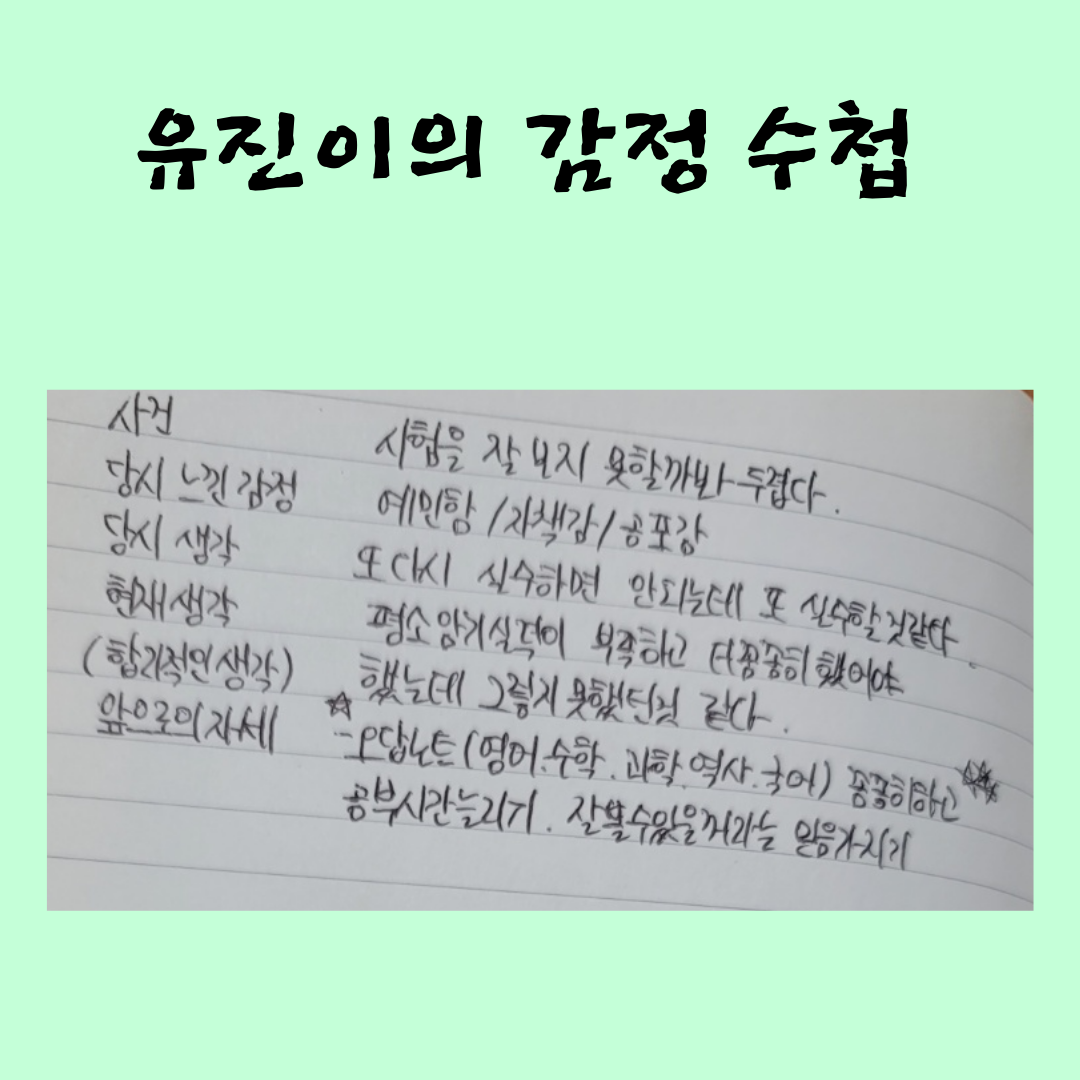 유진이의 감정 수첩
사건
시험을 잘 보지 못할까봐 두렵다.
당시 느낀 감정
예민함 / 자책감 / 공포감
당시 생각
또 다시 실수하면 안되는데 또 실수할것같다.
현재생각
평소 암기실력이 부족하고 더 꼼꼼히 했어야
(합리적인 생각)
했는데 그렇지 못했던것 같다.
앞으로의 자세
☆ - 오답노트 (영어.수학.과학.역사.국어) 꼼꼼히하고
공부시간늘리기. 잘볼수있을꺼라는 믿음가지기